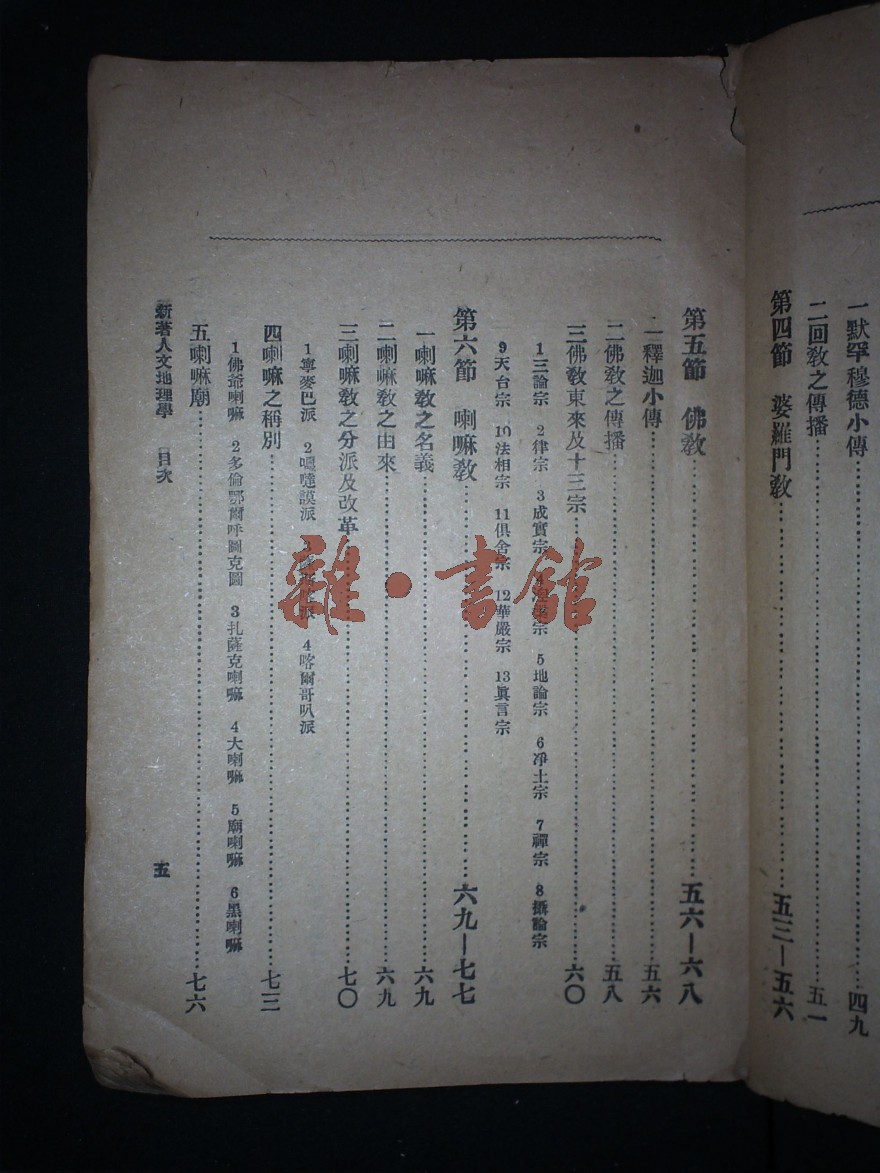 一默罕穆德小傳……四九
二回教之傳播……五一
第四節 婆羅門教……五三—五六
第五節 佛教……五六—六八
一釋迦小傳……五六
二佛教之傳播……五八
三佛教東來及十三宗……六〇
1三論宗 2律宗 3成實宗 4 宗 5地論宗 6淨土宗 7禪宗 8攝論宗
9天台宗 10法相宗 11俱舍宗 12華嚴宗 13眞言宗
第六節 喇嘛教……六九—七七
一喇嘛教之名義……六九
二喇嘛教之由來……六九
三喇嘛教之分派及改革……七〇
1寧麥巴派 2噶噠謨派 派 4喀爾哥叭派
四喇嘛之稱別……七三
1佛爺喇嘛 2多倫鄂爾呼圖克圖 3扎薩克喇嘛 4大喇嘛 5廟喇嘛 6黑喇嘛
五喇嘛廟……七六
新著人文地理學 目次
五
雜·書館